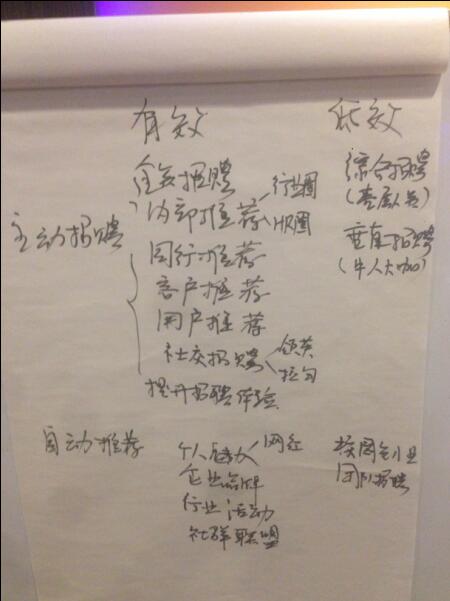 有效 低效
全员招聘 综合招聘
主动招聘 内部推荐 行业圈 职圈
同行推荐 垂直招聘
客户推荐 (牛人大咖)
用户推荐
社交招聘 领英 拉勾
提升招聘体验
自动推荐 个人魅力 网红
企业品牌 团队招聘
行业活动
社群联盟